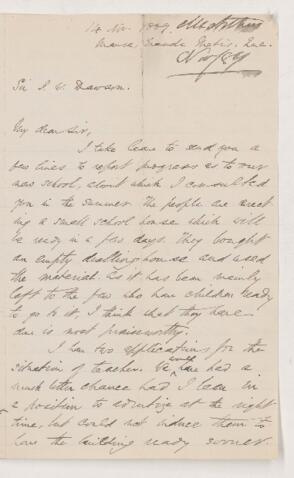 14 Nov. 1889.
Manse, Grande Metis. Que.
Sir J. W. Dawson.
My dear Sir,
I take leave to send you a
few lines to report progress as to our
new school, about which I consulted
you in the summer. The people are erect-
ing a small school house which will
be ready in a few days. They bought
an empty dwelling house and used
the material. As it has been mainly
left to the few who have children ready
to go to it, I think what they have
done is most praiseworthy.
I have two applications for the
situation of teacher. We could have had a
much better chance had I been in
a position to advertise at the right
time, but could not induce them to
have the building ready sooner.